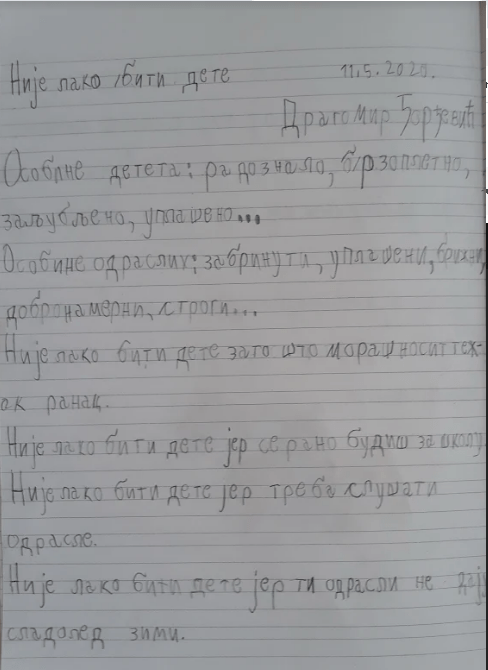 Није лако бити дете 11.5.2020.
Драгомир Ђорђевић
Особине детета: радознало, брзоплетно,
заљубљено, уплашено...
Особине одраслих: забринути, уплашени, брижни,
добронамерни, строги...
Није лако бити дете зато што мораш носит теж-
ак ранац.
Није лако бити дете јер се рано будиш за школу.
Није лако бити дете јер треба слушати
одрасле.
Није лако бити дете јер ти одрасли не дају
сладолед зими.